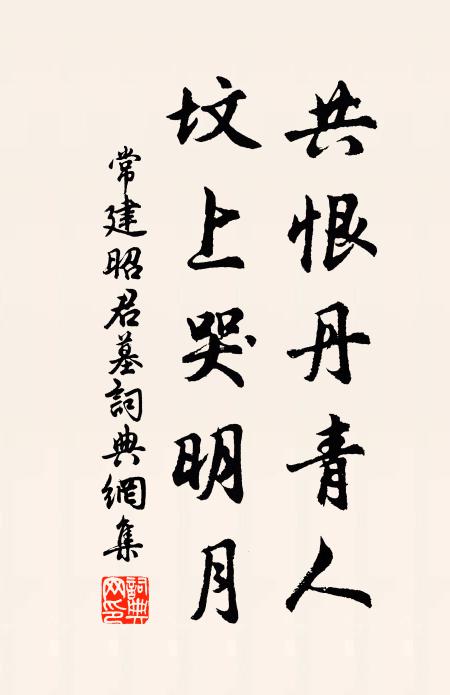 共恨丹青人
坟上哭明月
常建昭君墓詞典網集
詞典网印